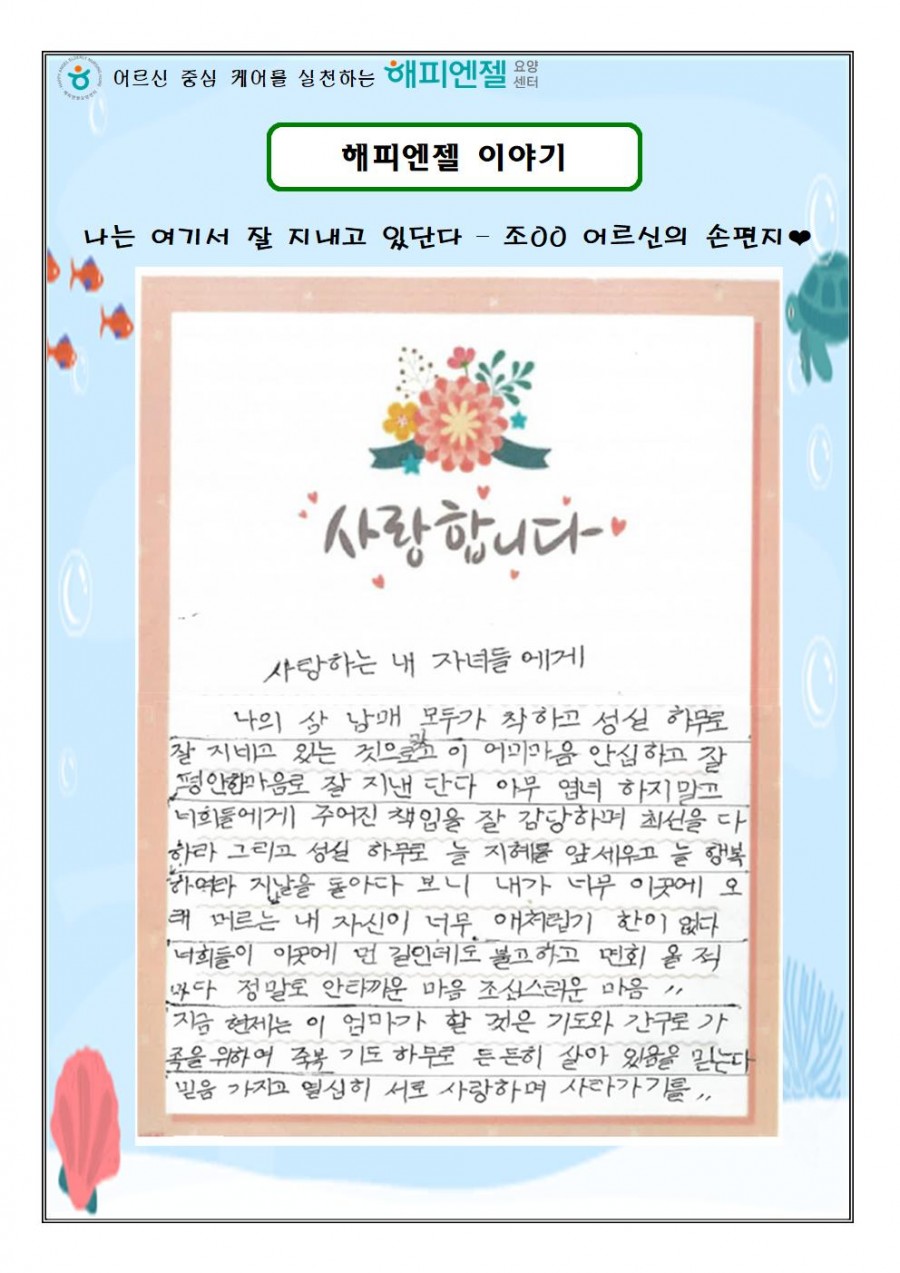 어르신 중심 케어를 실천하는 해피엔젤 요양센터
해피엔젤 이야기
나는 여기서 잘 지내고 있단다 - 조OO 어르신의 손편지❤
사랑합니다
사랑하는 내 자녀들에게
나의 삼 남매 모두가 착하고 성실 하무로
잘 지네고 있는 것으로 이 어미마음 안심하고 잘
평안한마음로 잘 지낸 단다 아무 염녀 하지말고
너희들에게 주어진 책임을 잘 감당하며 최선을 다
하라 그리고 성실 하무로 늘 지혜를 앞세우고 늘 행복
하여라 지난날을 돌아다 보니 내가 너무 이곳에 오
래 머르는 내 자신이 너무 애처럽기 한이 없다
너희들이 이곳에 먼 길인데도 불고하고 면회 올 적
마다 정말로 안타까운 마음 조심스러운 마음 〃
지금 현제는 이 엄마가 할 것은 기도와 간구로 가
족을 위하여 축복 기도 하무로 든든히 살아 있음을 믿는다
믿음 가지고 열심히 서로 사랑하며 사라가기를 〃